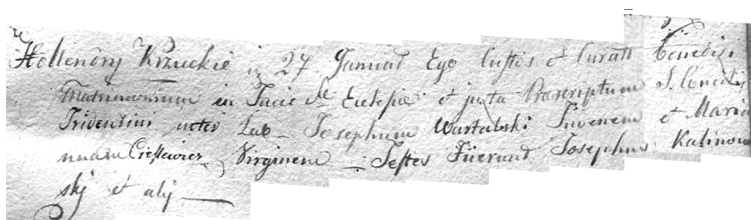 Hollendry Krzuckie 27 Januar Ego Custos et Curati Benedixi
Matrimonium in Facie Eclesiæ et juxta Præscriptum S. Concilii
Tridentini inter Lab. Josephum Wartalski Juvenem et Maria
nnam Ciesiewicz Virginem – Testes Fuerunt Josephus Kalinow
skj et alij